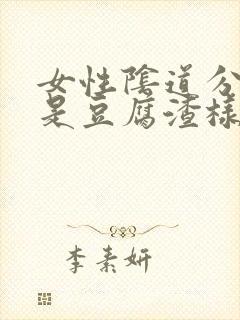 女性陰道分
是豆腐渣樣
李素妍